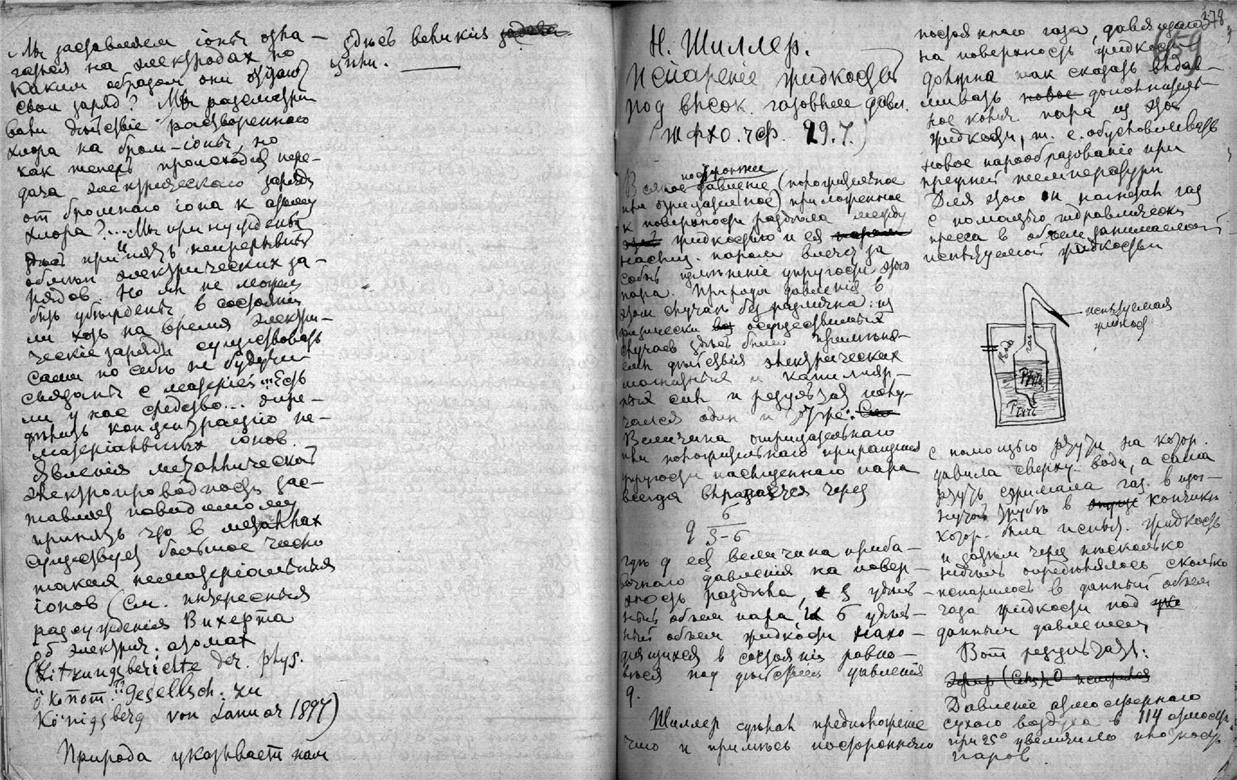 Мы заставляем іоны ося-
гаться на электродах но
каким образом они отдают
свой заряд? Мы разсматри-
вали дѣйствіе растворенного
хлора на бром-іоны, но
как теперь происходит пере-
дача электрического заряда
от бромнаго іона к атому
хлора?... Мы принуждены
принять непрерывный
обмѣн электрических за-
рядов. Но мы не можем
быть увѣрены в состояніи
ли хоть на время электри-
ческіе заряды существовать
сами по себѣ не будучи
связаны с матеріей... Есть
ли у нас средство... опре-
дѣлить концентрацію не-
матеріальных іонов.
Явленія металлической
электропроводности зас-
тавляют повидимому
принять что в металлах
существует большое число
таких нематеріальных
іонов (См. интересныя
разсужденія Вихерта
об электрич. атомах
(Sitzungsberichte der phys.
ökonom. Gesellsch. zu
Königsberg von Januar 1897)
Природа указывает нам
здѣсь великія
цѣпи.
378
459
Н. Шиллер.
Испареніе жидкостей
под высок. газовым давл.
(ЖФХО. ч.ф. 29. 7.)
постороннее
Всякое давленіе (положительное
или отрицательное) приложенное
к поверхности раздѣла между
жидкостью и ея
насыщ. паром влечет за
собою измѣненіе упругости этого
пара. Природа давленія в
этом случаѣ безразлична: из
физически осуществимых
случаев здѣсь были
дѣйствія электрических
магнитных и капилляр-
ных сил и результат полу-
чался один и тот же:
Величина отрицательнаго
или положительнаго приращенія
упругости насыщеннаго пара
всегда выражается через
q б/(з-б)
гдѣ q есть величина приба-
вочнаго давленія на повер-
хность раздѣла, з удѣль-
ный объем пара, и б удѣль-
ный объем жидкости нахо-
дящихся в состояніи равно-
вѣсія под дѣйствіем давленія
q.
Шиллер сдѣлал предположеніе
что и примѣсь посторонняго
постояннаго газа, давящаго
на поверхность жидкости
должна так сказать выдав-
ливать дополнитель-
ное колич. пара из этой
жидкости, т. е. обусловливать
новое парообразованіе при
прежней температурѣ
Для этого он нагнетал газ
с помощью гидравлическ.
пресса в объем занимаемый
испытуемой жидкостью
испытуемая
жидкость
Вода
газ
Ртуть
Ртуть
с помощью ртути на котор.
давила сверху вода, а сама
ртуть сжимала газ в
трубкѣ в кончикѣ
котор. была испыт. жидкость
и затѣм через нѣсколько
опредѣлялось сколько
испарилось в данный объем
газа жидкости под
данным давленіем
Вот результаты:
Давленіе атмосфернаго
сухого воздуха в 114 атмосф.
при 25° увеличило плотность
паров